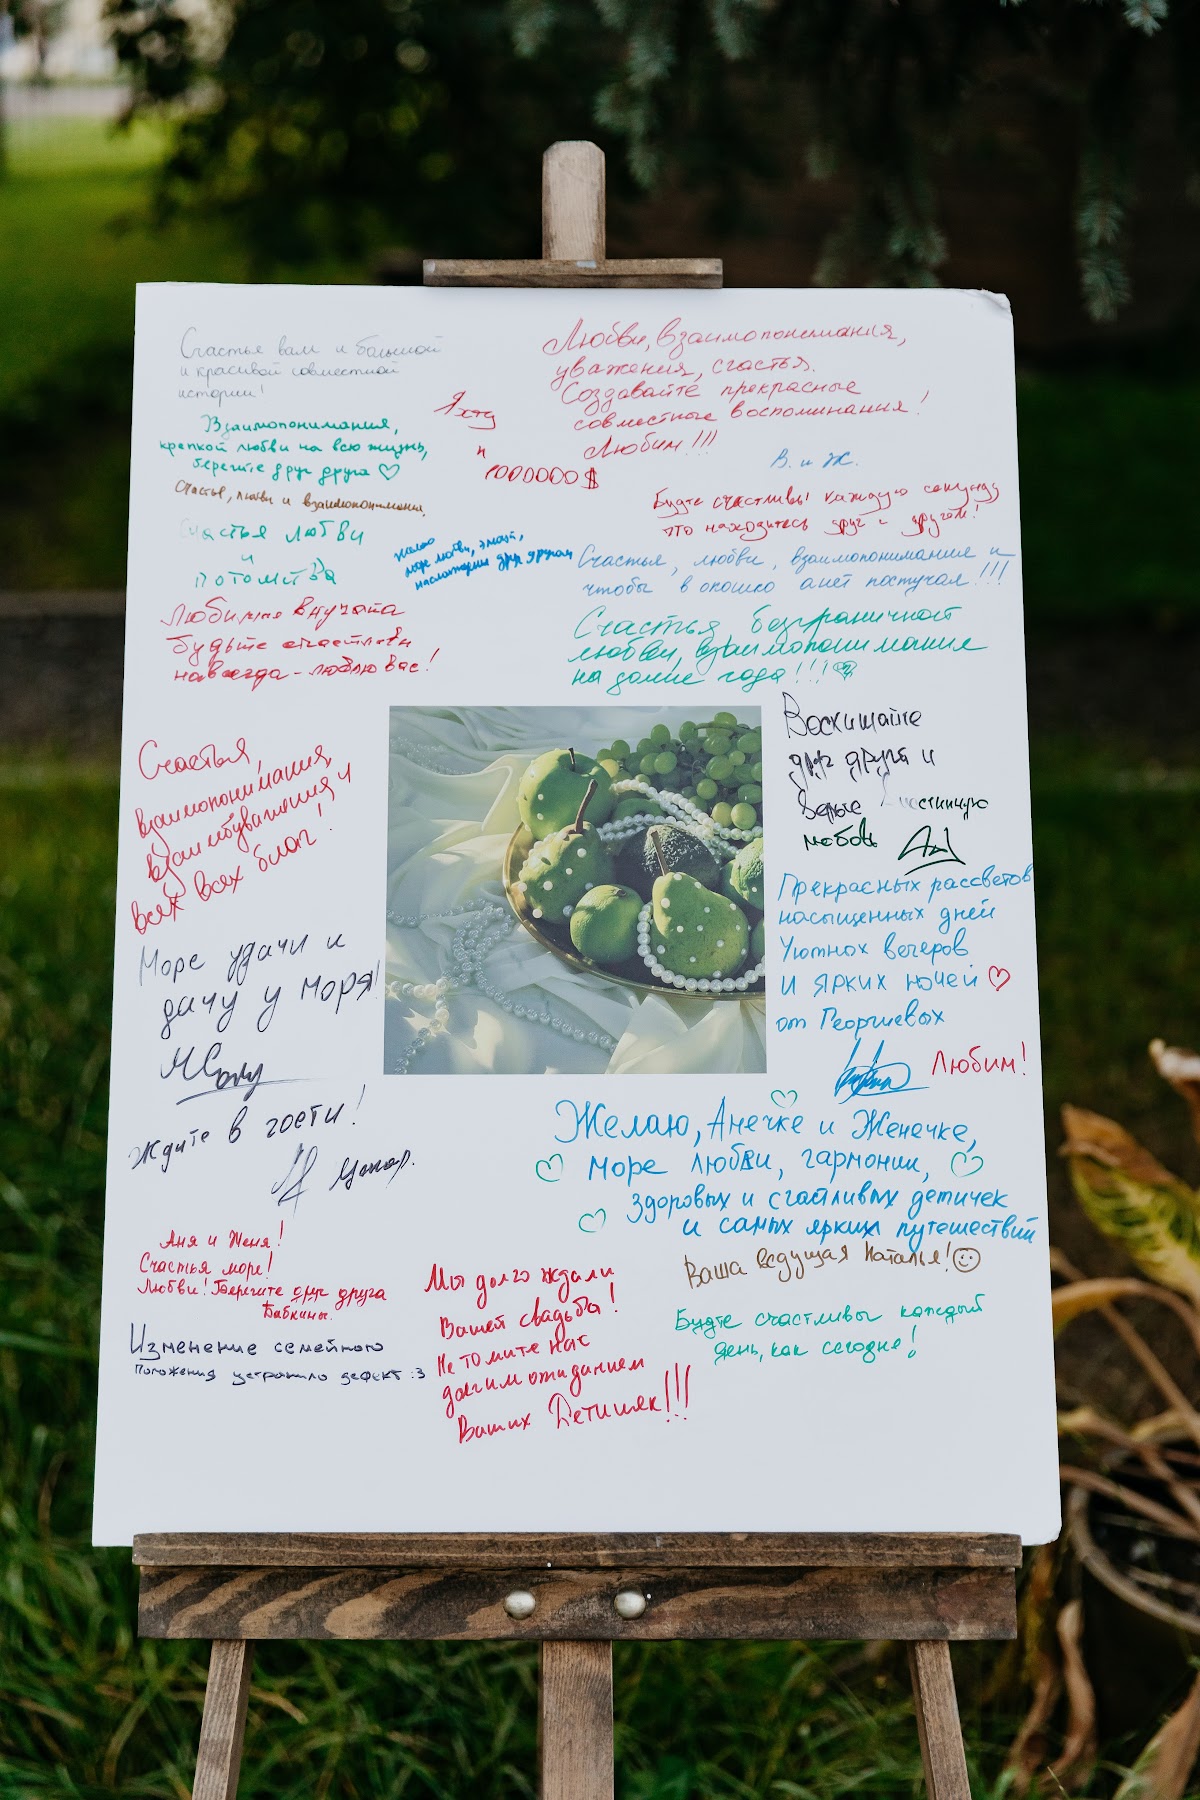 Счастья вам и большой
и красивой совместной
истории!
Взаимопонимания,
крепкой любви на всю жизнь,
берегите друг друга
Счастье, любви и взаимопонимания
Счастья любви
и
потомства
Любимые внучата
будьте счастливы
навсегда - люблю вас!
Яхту
и
1000000$
Желаю
море любви,
наслаждения друг другом
Любви, взаимопонимания,
уважения, счастья.
Создавайте прекрасные
совместные воспоминания!
Любим!!!
В. и Ж.
Будте счастливы каждую секунду
что находитесь друг с другом!
Счастья, любви, взаимопонимания и
чтобы в окошко аист постучал!!!
Счастья безграничной
любви, взаимопонимания
на долгие года!!!
Счастья,
взаимопонимания,
и
всех всех благ!
Море удачи и
дачу у моря!
Ждите в гости!
Аня и Женя!
Счастья море!
Любви! Берегите друг друга
Бабкины.
Изменение семейного
положения устранило дефект :3
Восхищайте
друг друга и
любовь
Прекрасных рассветов
насыщенных дней
Уютных вечеров
И ярких ночей
от Георгиевых
Любим!
Желаю, Анечке и Женечке,
море любви, гармонии,
здоровых и счастливых детичек
и самых ярких путешествий
Ваша ведущая Наталья!
Мы долго ждали
Вашей свадьбы!
Не томите нас
долгим ожиданием
Ваших Детишек!!!
Будте счастливы каждый
день, как сегодня!